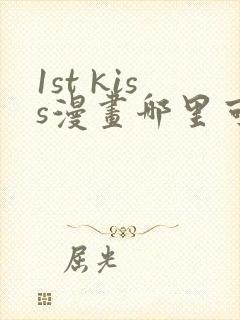 1st kis
s漫畫哪里可
屈光